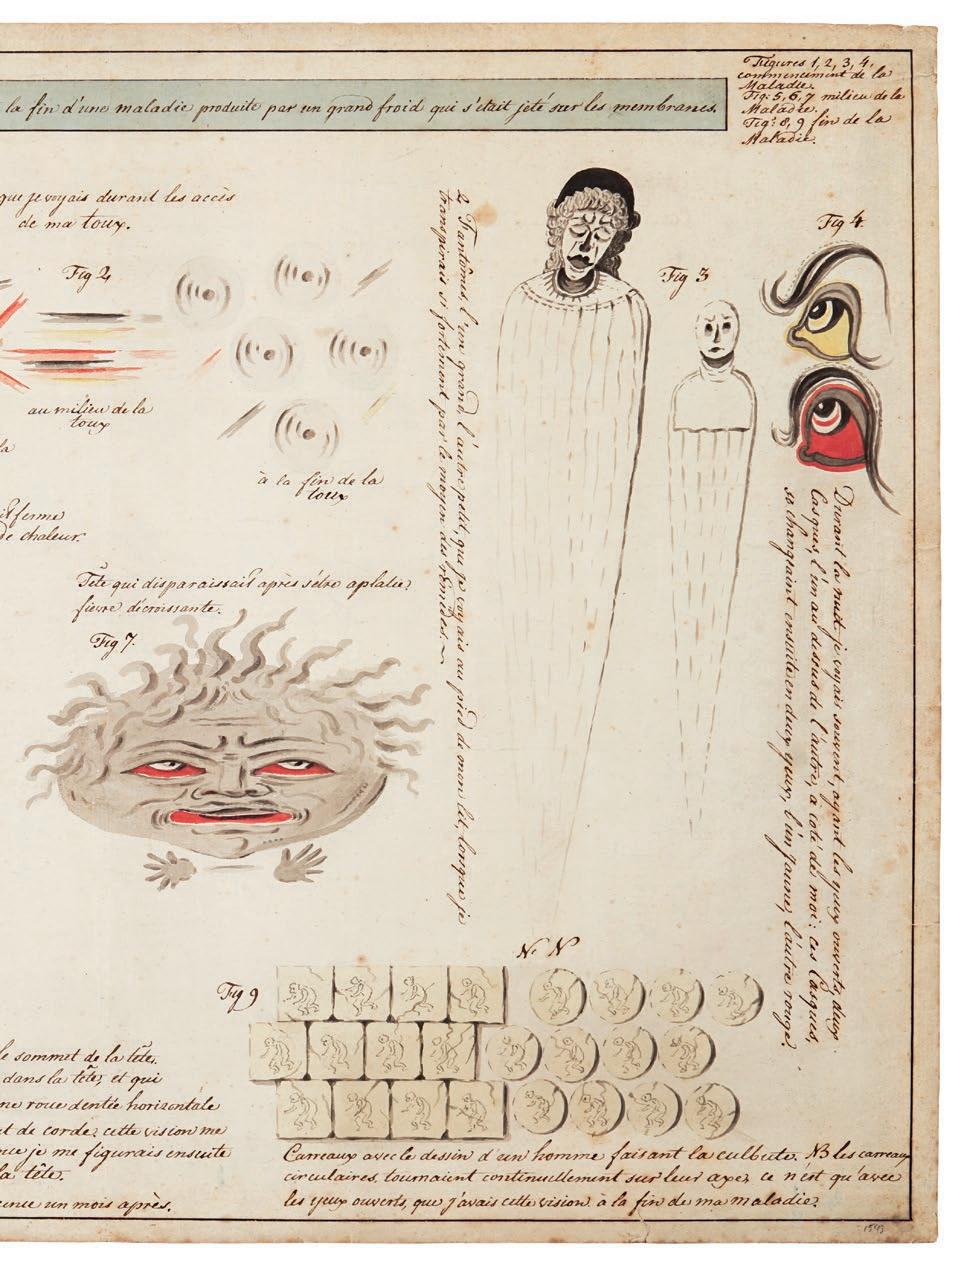 la fin d'une maladie produite par un grand froid qui s'était jeté sur les membranes.
Figures 1, 2, 3, 4,
commencement de la
Maladie.
Fig. 5, 6, 7 milieu de la
Maladie.
Figs 8, 9 fin de la
Maladie.
que je voyais durant les accès
de ma toux.
Fig 2
au milieu de la
toux
à la fin de la
toux
la
it ferme
de chaleur.
2 Fantômes, l'un grand, l'autre petit, que je voyais au pied de mon lit, lorsque je
transpirais si fortement par le moyen des remèdes.
Fig 3
Fig 4.
Durant la nuit je voyais souvent, ayant les yeux ouverts, deux
Casques, l'un au dessus de l'autre, à coté de moi: ces Casques,
se changeaient ensuite en deux yeux, l'un jaune, l'autre rouge.
Tête qui disparaissait après s'être aplatie?
fièvre décroissante.
Fig 7.
N. N
Fig 9
le sommet de la tête.
dans la tête, et qui
ne roue dentée horizontale
t de corde; cette vision me
que je me figurais ensuite
la tête.
enue un mois après.
Carreaux avec le dessin d'un homme faisant la culbute. NB les carreaux
circulaires, tournaient continuellement sur leur axe, ce n'est qu'avec
les yeux ouverts, que j'avais cette vision à la fin de ma maladie.